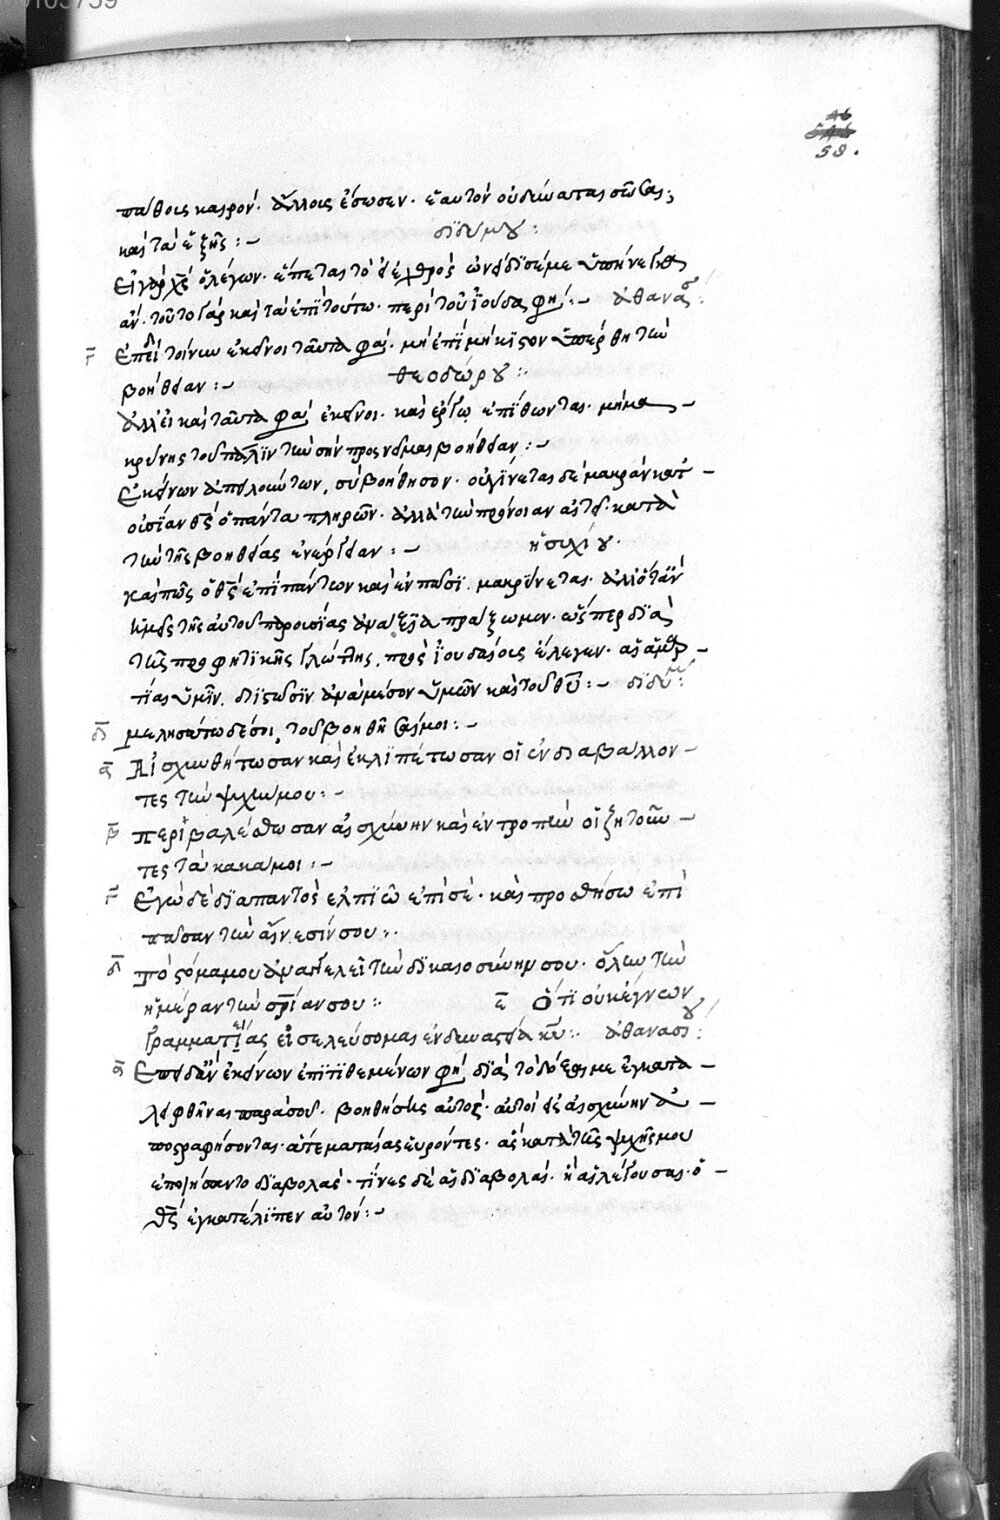 58.
πάθοις καιρόν. ἄλλοις ἔσωσεν. ἑαυτὸν οὐ δύναται σῶσαι;
καὶ τὰ ἑξῆς :–     διδύμου :
Εἰ γὰρ χς ὁ λέγων. εἴπεται τὸ εἰ ἐχθρὸς ὠνείδισέ με ὑπήνεγκα
ἄν. τοῦτο γὰρ καὶ τὰ ἐπὶ τούτω. περὶ τοῦ ἰούδα φησί :–     ἀθανασ :
γ Ἐπεὶ τοίνυν ἐκεῖνοι ταῦτα φασί. μὴ ἐπὶ μήκιστον ὑπέρθη τὴν
βοήθειαν :–     θεοδώρου :
Ἀλλ' εἰ καὶ ταῦτα φασὶ ἐκεῖνοι. καὶ ἔργω ἐπίθωνται. μὴ μα–
κρύνης τοῦ πάλιν τὴν σὴν πρὸς ἡμᾶς βοήθειαν :–
Ἐκείνων ἀπολοιώτων, σὺ βοήθησον. οὐ γίνεται δὲ μακρὰν κατ'–
οὐσίαν θς ὁ πάντα πληρῶν. ἀλλὰ τὴν πρόνοιαν αἰτεῖ. κατὰ
τὴν τῆς βοηθείας ἐνέργειαν :–     ἡσιχίου.
καὶ πῶς ὁ θς ἐπὶ πάντων καὶ ἐν πᾶσι. μακρύνεται. ἀλλ' ὅταν
ἡμεῖς τῆς αὐτοῦ παροισίας ἀνάξια πράξωμεν. ὥσπερ διὰ
τῆς προφητικῆς γλώττης, πρὸς ἰουδαίοις ἔλεγεν. αἱ ἁμαρ–
τίαι ὑμῶν, διϊστῶσιν ἀναμέσον ὑμῶν καὶ τοῦ θυ :–     διδύ :
δ μελησάτω δέ σοι, τοῦ βοηθῆσαί μοι :–
α Αἰσχυνθήτωσαν καὶ ἐκλιπέτωσαν οἱ ἐνδιαβάλλον–
τες τὴν ψυχήν μου :–
β περιβαλέσθωσαν αἰσχύνην καὶ ἐντροπὴν οἱ ζητοῦν–
τες τὰ κακά μοι :–
γ Ἐγὼ δὲ διαπαντὸς ἐλπιῶ ἐπὶ σέ. καὶ προσθήσω ἐπὶ
πᾶσαν τὴν αἴνεσίν σου :
δ Τὸ στόμα μου ἀναγγελεῖ τὴν δικαιοσύνην σου. ὅλην τὴν
ἡμέραν τὴν σρίαν σου :     ε Ὅτι οὐκ ἔγνων
γραμματείας εἰσελεύσομαι ἐν δυναστεία κυ :     ἀθανασίου :
α Ἐπειδὰν ἐκείνων ἐπιτιθεμένων φησὶ διὰ τὸ δόξαι με ἐγκατα–
λειφθῆναι παρὰ σοῦ. βοηθήσεις αὐτός. αὐτοὶ εἰς αἰσχύνην ἀ–
ποστραφήσονται. ἅτε ματαίας εὑρόντες. ἃς κατὰ τῆς ψυχῆς μου
ἐποιήσαντο διαβολάς. τίνες δὲ αἱ διαβολαί. ἢ αἱ λέγουσαι. ὁ–
θς ἐγκατέλιπεν αὐτόν :–